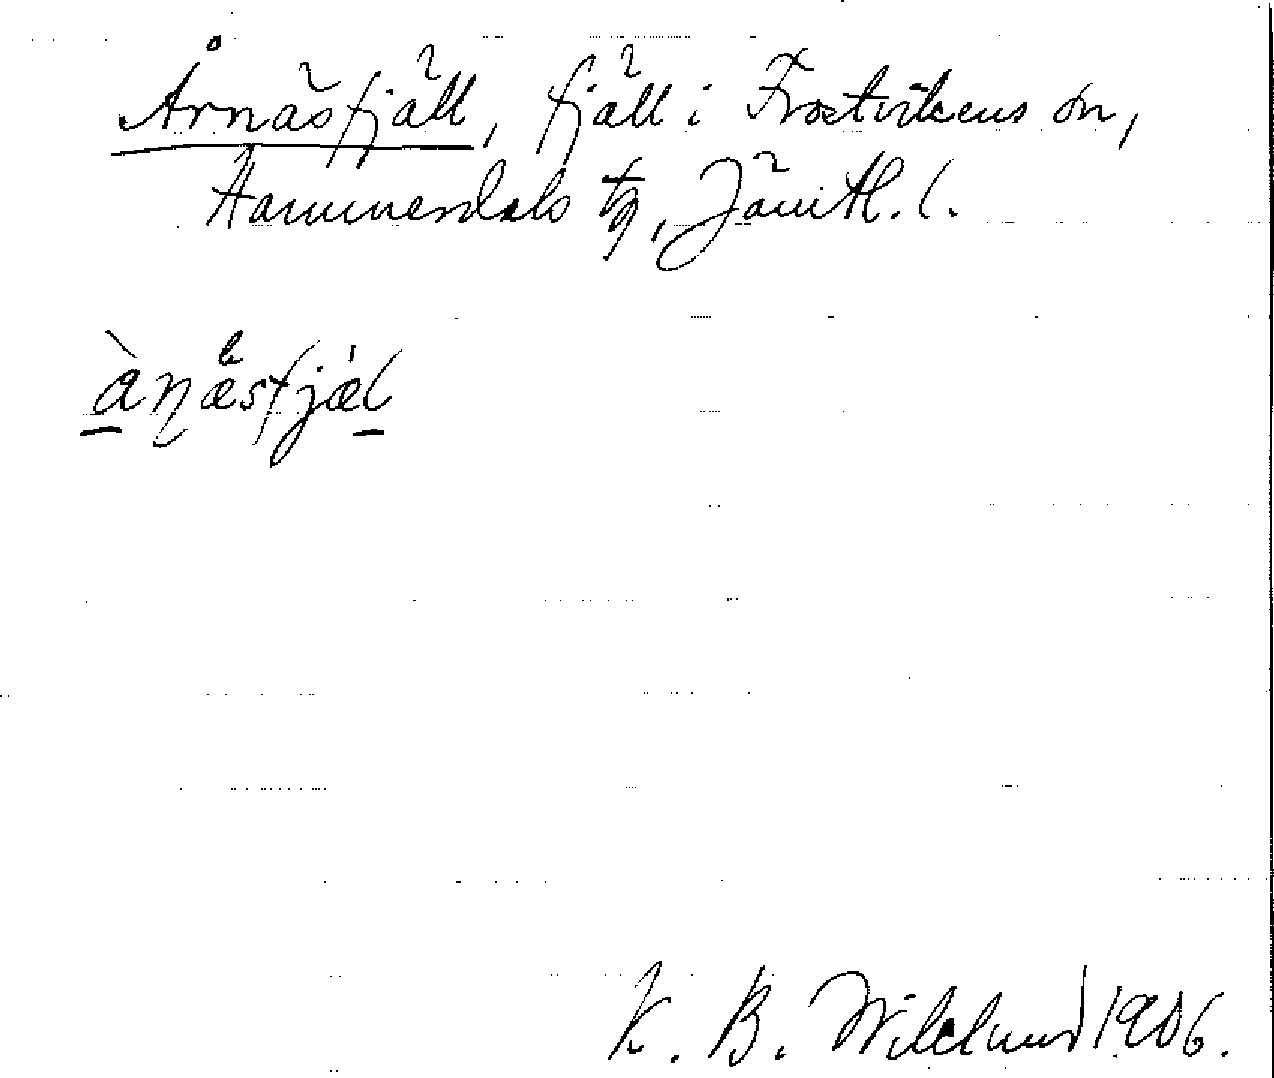 Årnäsfjäll, fjäll i Frostvikens sn,
Hammerdals tg, Jämtl. l.
ànæsfjæl
K. B. Wiklund 1906.